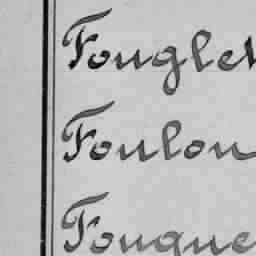 Fouglet
Foulon
Fouque